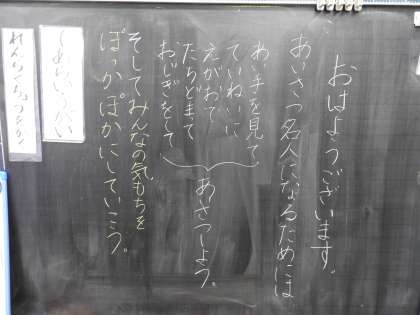 おはようございます。
あいさつ名人になるためには
あい手を見て
ていねいに
えがおで
たちどまって
おじぎをして
あいさつしよう。
そしてみんなの気もちを
ぽっかぽかにしていこう。